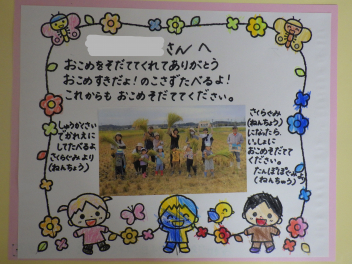 さんへ
おこめをそだててくれてありがとう
おこめすきだよ!のこさずたべるよ!
これからも おこめそだててください。
しゅうかくさい
でかれえに
してたべるよ
さくらぐみより
(ねんちょう)
さくらぐみ
(ねんちょう)
になったら、
いっしょに
おこめそだてて
ください。
たんぽぽぐみより
(ねんちゅう)